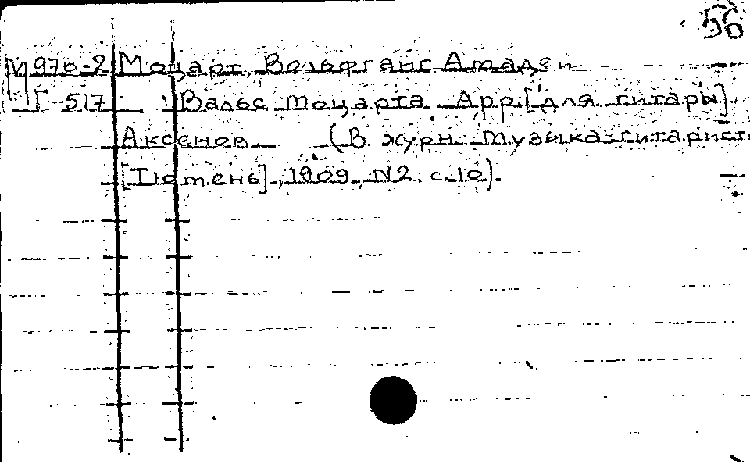 56
М 970-2 Моцарт, Вольфганг Амадей
Г-517 Вальс Моцарта Арр. [для гитары]
Аксенов (В журн. Музыка гитарист
[Тюмень], 1909, N2, с.10).